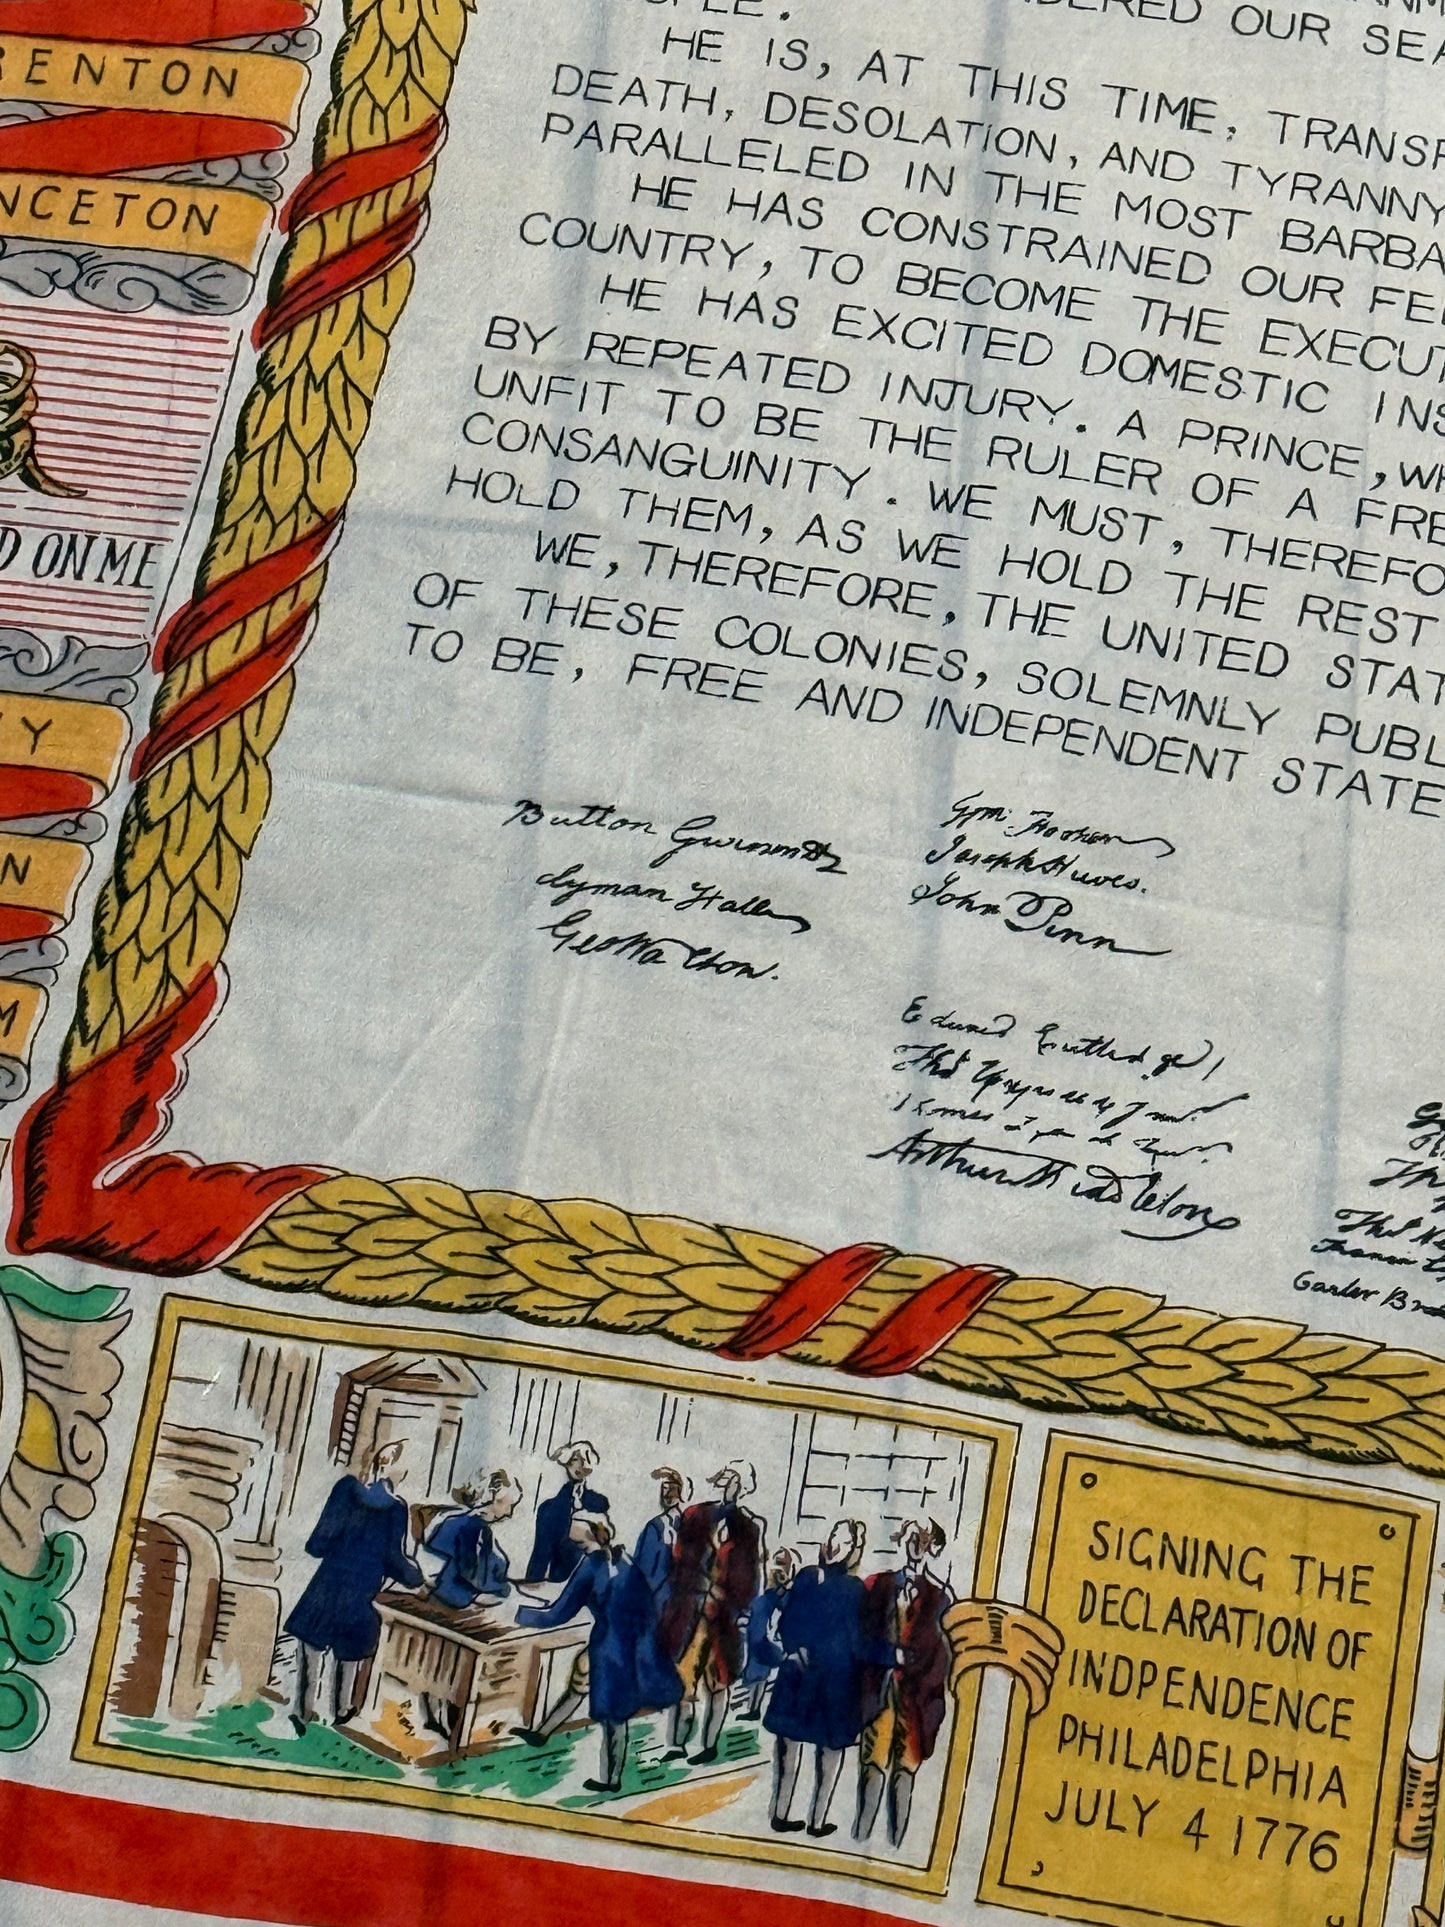 RENTON
NCETON
D ON ME
Y
N
M
DERED OUR SEA
HE IS, AT THIS TIME, TRANSP
DEATH, DESOLATION, AND TYRANNY
PARALLELED IN THE MOST BARBA
HE HAS CONSTRAINED OUR FEL
COUNTRY, TO BECOME THE EXECUT
HE HAS EXCITED DOMESTIC INS
BY REPEATED INJURY. A PRINCE, WH
UNFIT TO BE THE RULER OF A FRE
CONSANGUINITY. WE MUST, THEREFO
HOLD THEM, AS WE HOLD THE REST
WE, THEREFORE, THE UNITED STAT
OF THESE COLONIES, SOLEMNLY PUBL
TO BE, FREE AND INDEPENDENT STATE
Button Gwinnett
Lyman Hall
Geo Walton.
Joseph Hewes.
John Penn
Edward Rutledge
Arthur Middleton
SIGNING THE
DECLARATION OF
INDPENDENCE
PHILADELPHIA
JULY 4 1776